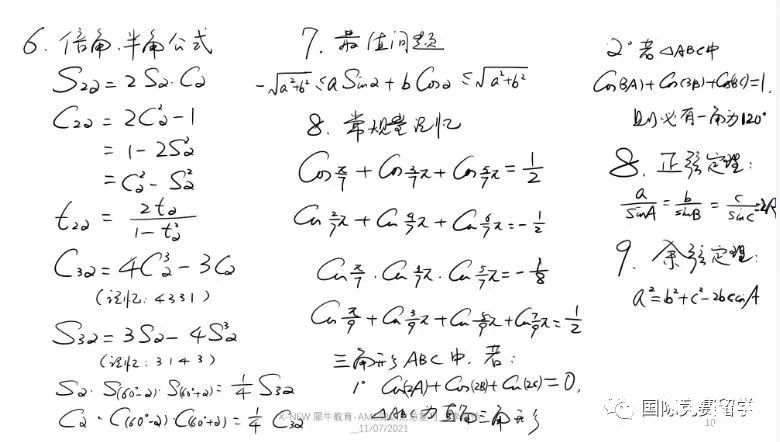 6. 倍角、半角公式
S2α = 2Sα·Cα
C2α = 2Cα² - 1
= 1 - 2Sα²
= Cα² - Sα²
t2α = 2tα / (1 - tα²)
C3α = 4Cα³ - 3Cα
(记忆: 4331)
S3α = 3Sα - 4Sα³
(记忆: 3143)
Sα · S(60°-α) · S(60°+α) = 1/4 S3α
Cα · C(60°-α) · C(60°+α) = 1/4 C3α
7. 最值问题
-√(a²+b²) ≤ a Sinα + b Cosα ≤ √(a²+b²)
8. 常规量记忆
Cos π/7 + Cos 3/7 π + Cos 5/7 π = 1/2
Cos 2/7 π + Cos 4/7 π + Cos 6/7 π = -1/2
Cos π/7 · Cos 3/7 π · Cos 5/7 π = -1/8
Cos π/9 + Cos 3/9 π + Cos 5/9 π + Cos 7/9 π = 1/2
三角形ABC中, 若:
1° Cos(2A) + Cos(2B) + Cos(2C) = 0,
△ABC为直角三角形
2° 若△ABC中
Cos(3A) + Cos(3B) + Cos(3C) = 1,
则必有一角为120°
8. 正弦定理:
a/SinA = b/SinB = c/SinC = 2R
9. 余弦定理:
a² = b² + c² - 2bc cosA
X-NEW 犀牛教育-AM
_11/07/2021
10
国际竞赛留学